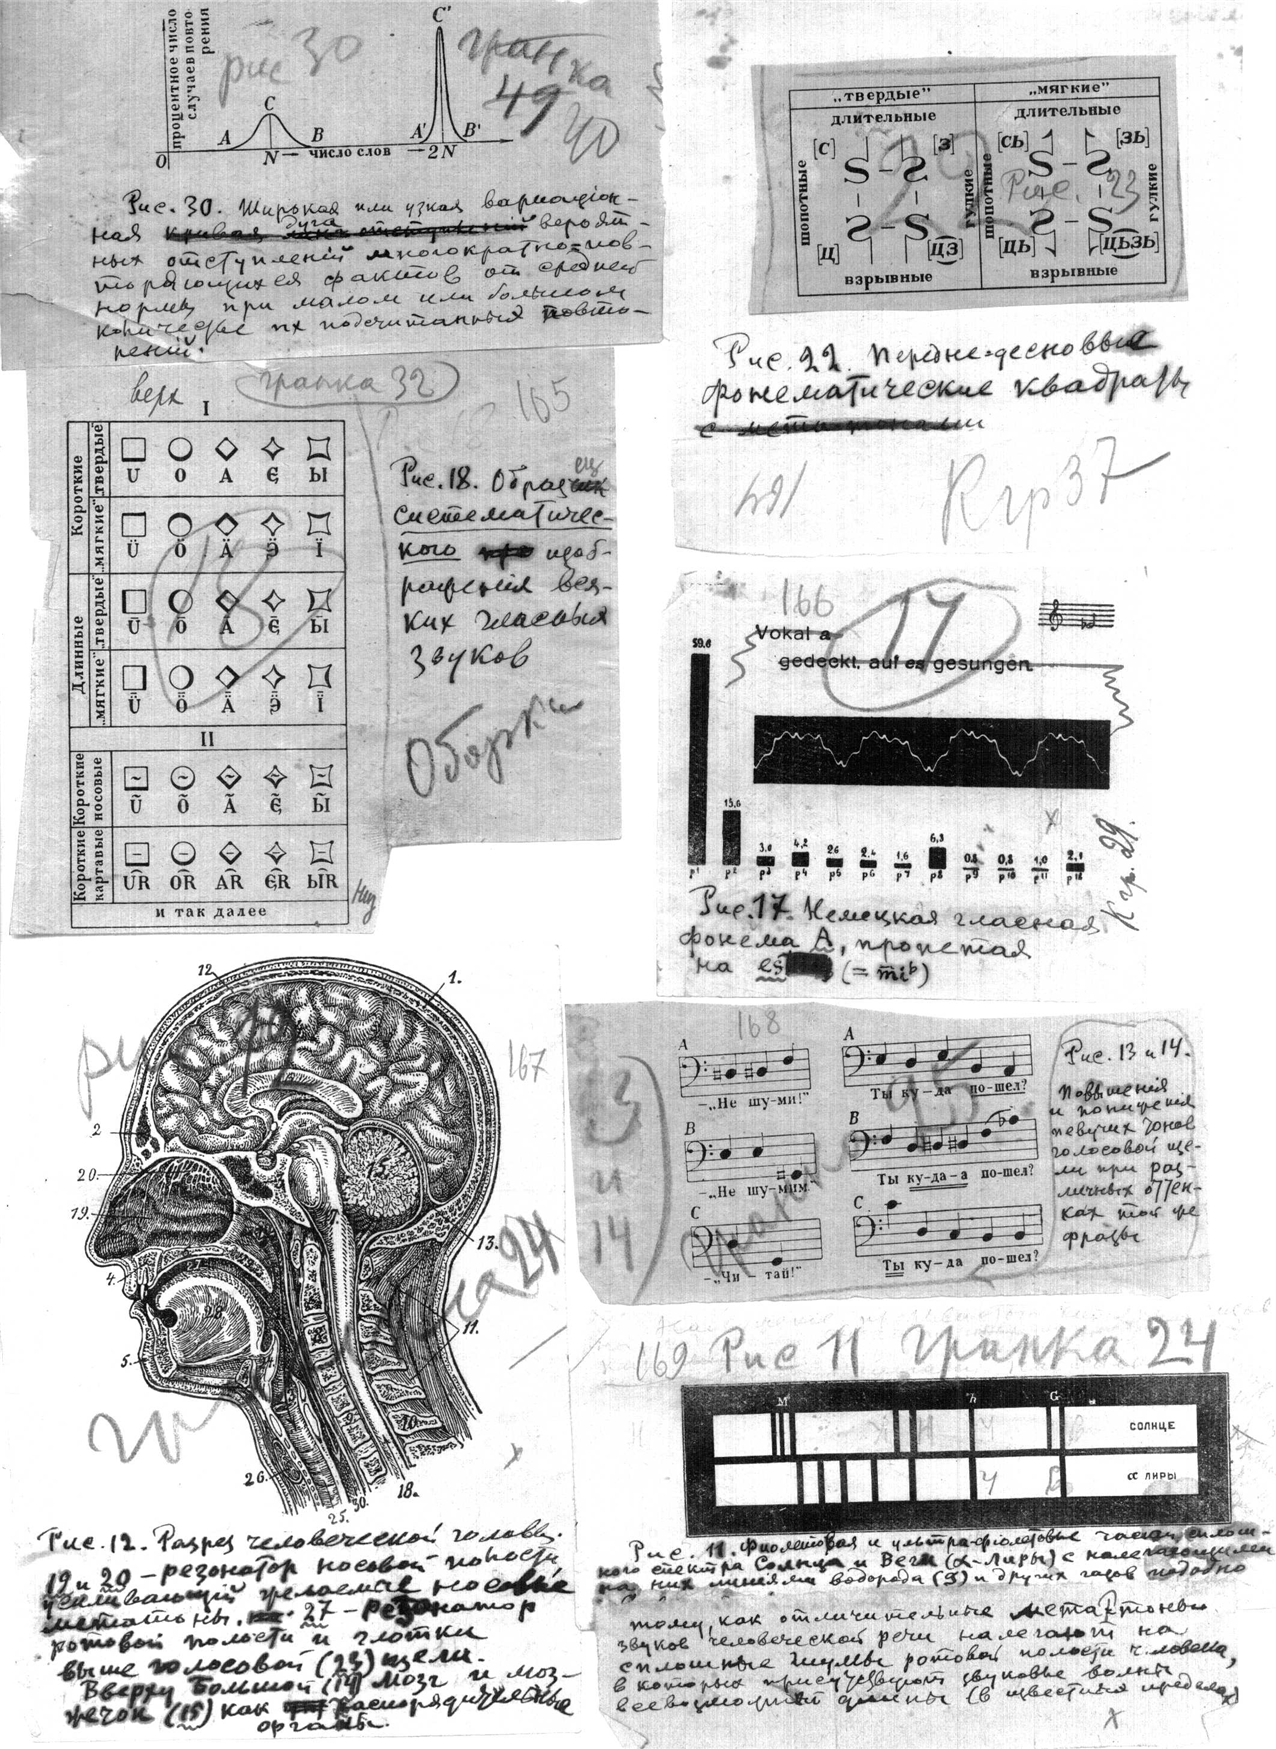 процентное число
случаев повто-
рения
рис 30
гранка
49
40
C
C'
A
B
A'
B'
O
N — число слов — 2N
Рис. 30. Широкая или узкая вариацион-
ная дуга вероят-
ных отступлений многократно-пов-
торяющихся фактов от средней
нормы при малом или большом
количестве их подсчитанных повто-
рений.
„твердые"
„мягкие"
длительные
длительные
[С]
[З]
[СЬ]
[ЗЬ]
шопотные
гулкие
шопотные
гулкие
22
Рис. 23
[Ц]
[ЦЗ]
[ЦЬ]
[ЦЬЗЬ]
взрывные
взрывные
Рис. 22. Передне-десновые
фонематические квадраты
К гр 37
верх
гранка 32
165
I
Короткие
„твердые"
U O A Є Ы
„мягкие"
Ü Ö Ä Ӭ Ї
18
Длинные
„твердые"
Ū Ō Ā Є̄ Ы̄
„мягкие"
Ǖ Ȫ Ǟ Э̄̈ Ї̄
II
Короткие носовые
Ũ Õ Ã Є̃ Ы̃
Короткие картавые
UR OR AR ЄR ЫR
и так далее
низ
Рис. 18. Образец
систематичес-
кого изоб-
ражения вся-
ких гласных
звуков
Оборки
166
17
Vokal a
gedeckt, auf es gesungen
59.6
15,6
3,0
4,2
2,6
2,4
1,6
6,3
0,5
0,8
1,0
2,1
p1 p2 p3 p4 p5 p6 p7 p8 p9 p10 p11 p12
К гр. 29.
Рис. 17. Немецкая гласная
фонема А, пропетая
на es (= mi b)
12
1.
167
2
20.
15.
19.
13.
4.
28.
11.
5.
10.
26.
18.
30.
25.
24
Рис. 12. Разрез человеческой головы.
19 и 20 – резонатор носовой полости
усиливающий желаемые носовые
метатоны. 27 – резонатор
ротовой полости и глотки
выше голосовой (23) щели.
Вверху большой (14) мозг и моз-
жечок (15) как распорядительные
органы.
168
13
и
14
A
–„Не шу-ми!"
B
–„Не шу-мим
C
–„Чи – тай!"
A
Ты ку-да по-шел?
B
Ты ку-да-а по-шел?
C
Ты ку-да по-шел?
Рис. 13 и 14.
Повышения
и понижения
певучих тонов
голосовой ще-
ли при раз-
личных оттен-
ках той же
фразы
169 Рис 11 гранка 24
M
h
G
СОЛНЦЕ
α ЛИРЫ
Рис. 11. Фиолетовая и ультра-фиолетовые части сплош-
ного спектра Солнца и Веги (α-Лиры) с налегающими
на них линиями водорода (9) и других газов подобно
тому, как отличительные метатоны
звуков человеческой речи налегают на
сплошные шумы ротовой полости человека,
в которых присутствуют звуковые волны
всевозможной длины (в известных пределах)